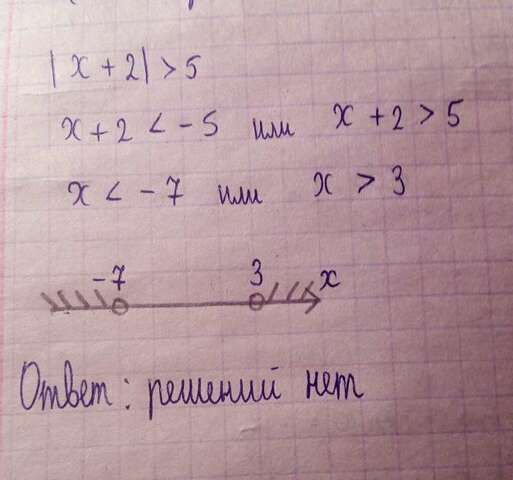 |x + 2| > 5
x + 2 < - 5 или x + 2 > 5
x < - 7 или x > 3
-7 3 x
Ответ: решений нет